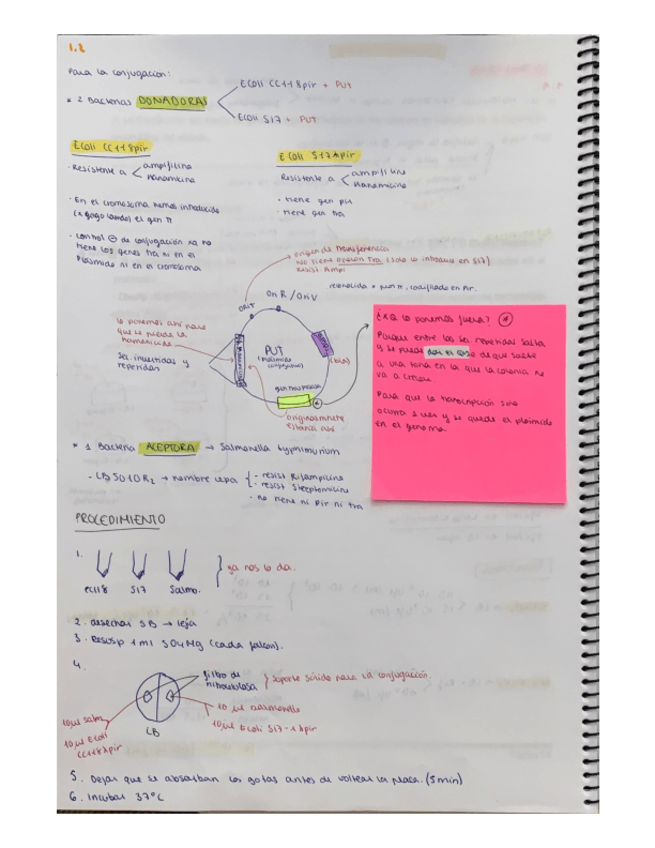 1.2
Para la conjugación:
* 2 Bacterias DONADORAS
Ecoli CC118pir + PUT
Ecoli S17 + PUT
Ecoli CC118pir
· Resistente a
ampicilina
Kanamicina
· En el cromosoma hemos introducido
el gen π
· control ⊖ de conjugación xq no
tiene los genes tra ni en el
Plásmido ni en el cromosoma
Ecoli S17λpir
Resistente a
Kanamicina
· tiene gen pir
· tiene gen tra
origen de transferencia
No tiene operón tra (solo lo introduce en S17)
Resist. Ampi
oriT
Ori R / Ori V
codificado en Pir.
lo ponemos ahí para
que se pierda la
Sec. insertidas y
repetidas
PUT
(plásmido
conjugativo)
(bla)
gen transposasa
originalmente
estaría ahí
¿xq lo ponemos fuera? *
Porque entre las sec repetidas salta
y se puede de que salte
a una zona en la que la colonia no
va a crecer.
Para que la transcripción solo
ocurra 1 vez y se quede el plásmido
en el genoma.
* 1 Bacteria ACEPTORA → Salmonella typhimurium
- LB5010R2 → nombre cepa
- resist Rifampicina
- resist Streptomicina
· no tiene ni pir ni tra
PROCEDIMIENTO
1.
ec118 S17 Salmo.
ya nos lo da.
2. desechar SB → lejía
3. Resusp 1ml SO4Mg (cada falcon).
4.
filtro de
nitrocelulosa
soporte sólido para la conjugación.
10 μl salmonella
10 μl Ecoli S17-1 λpir
10 μl Salmo
10 μl Ecoli
CC118λpir
LB
5. Dejar que se absorban las gotas antes de voltear la placa. (5min)
6. Incubar 37°C